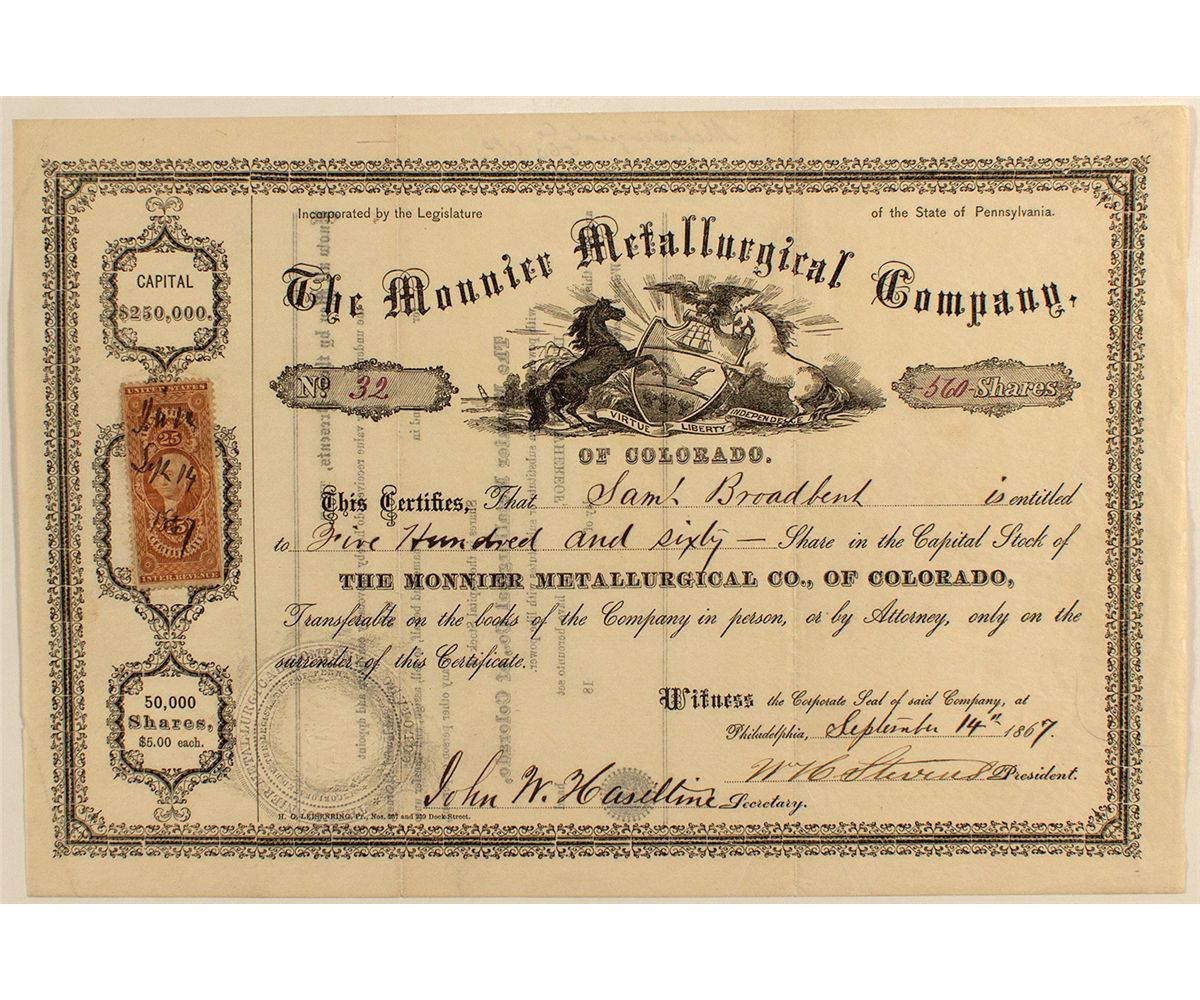 Incorporated by the Legislature of the State of Pennsylvania.
The Monnier Metallurgical Company,
CAPITAL
$250,000.
No. 32
560 Shares
VIRTUE LIBERTY INDEPENDENCE
OF COLORADO.
UNITED STATES
25
Sept 14
1867
CERTIFICATE
INTER. REVENUE
This Certifies, That Saml Broadbent is entitled
to Five Hundred and sixty — Share in the Capital Stock of
THE MONNIER METALLURGICAL CO., OF COLORADO,
Transferable on the books of the Company in person, or by Attorney, only on the
surrender of this Certificate.
50,000
Shares,
$5.00 each.
Witness the Corporate Seal of said Company, at
Philadelphia, September 14th 1867.
Wm H Stevens President.
John W. Haseltine Secretary.
H. G. LEISENRING, Pr., Nos. 237 and 239 Dock Street.